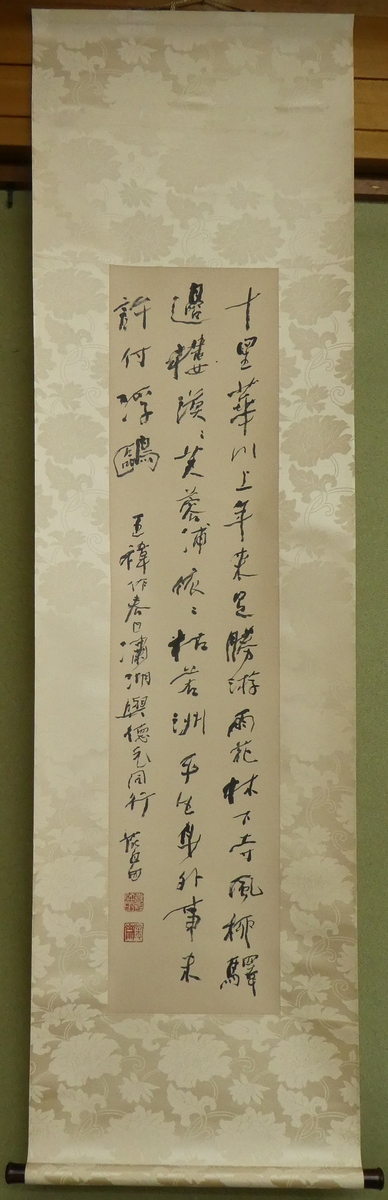 十里華川上年来足勝游雨花林下寺風柳驛
邊樓漠〻芙蓉浦依〻枯若洲平生身外事未
許付浮鷗
王褘作春日瀟湖與德元同行